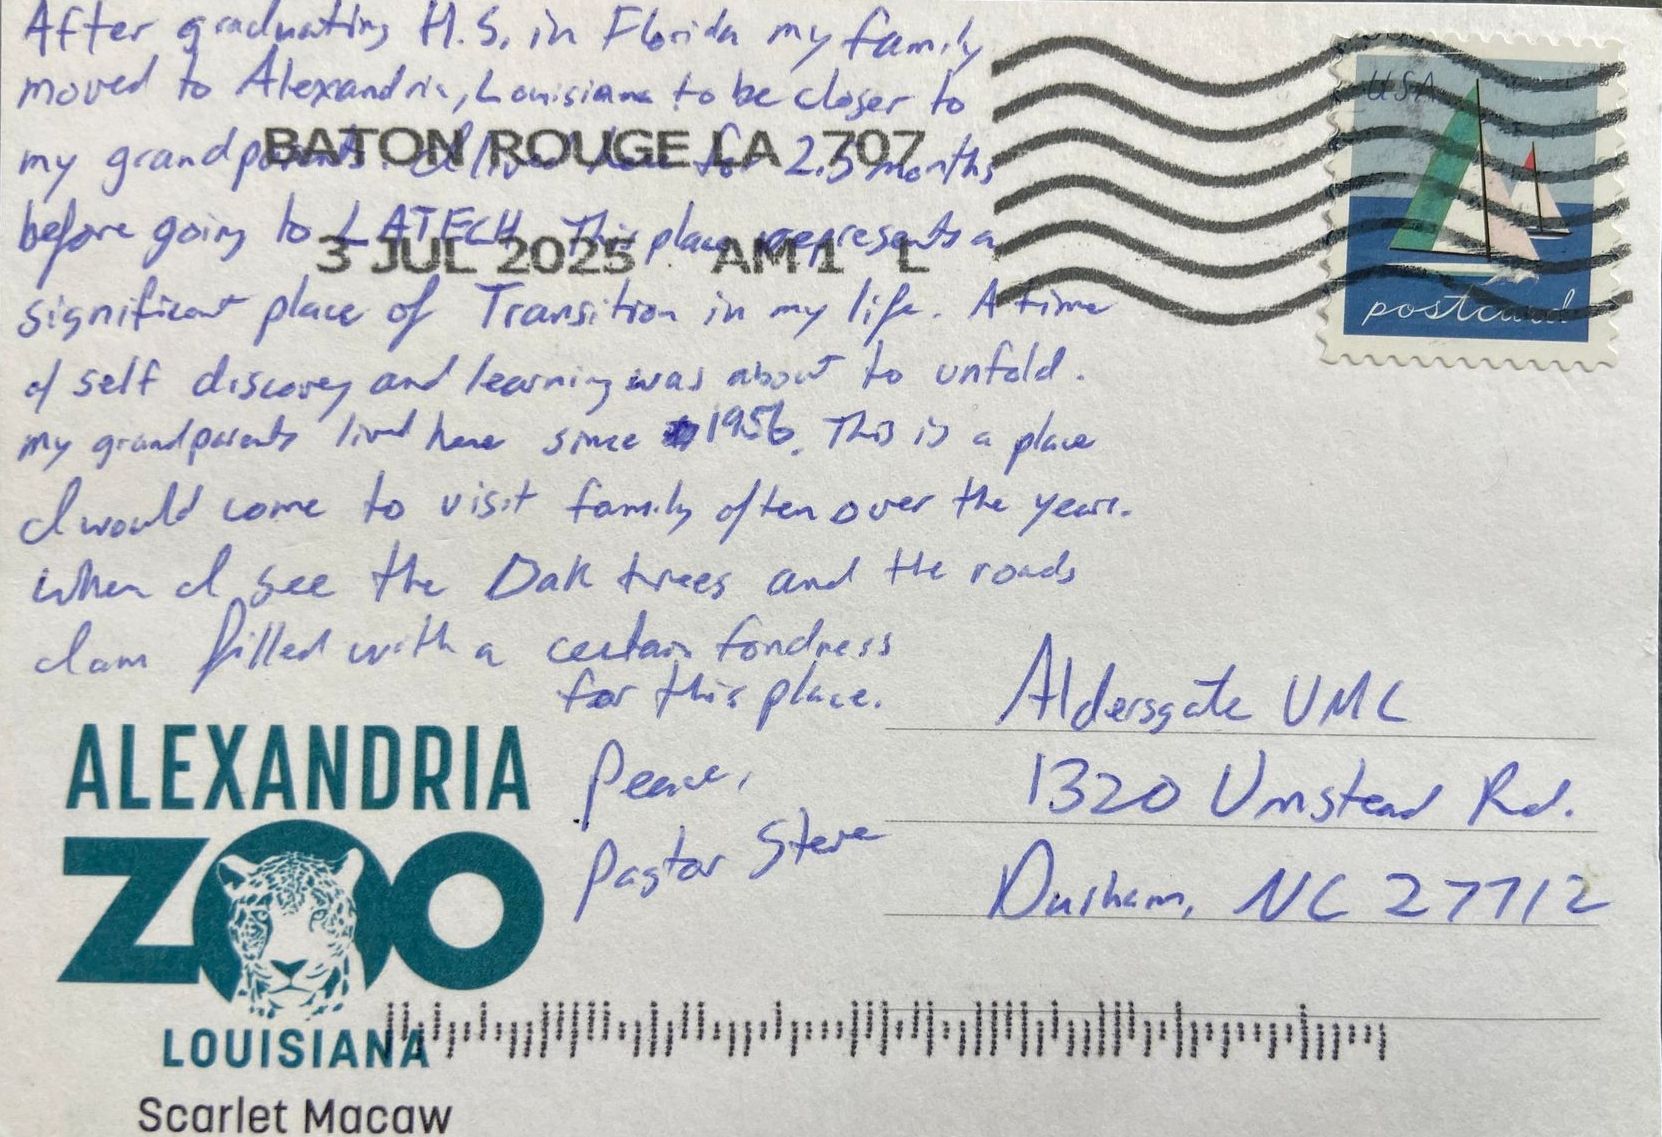 After graduating H.S. in Florida my family
moved to Alexandria, Louisiana to be closer to
my grandparents. I lived here for 2.5 months
before going to LATECH. This place represents a
significant place of Transition in my life. A time
of self discovery and learning was about to unfold.
my grandparents lived here since 1956. This is a place
I would come to visit family often over the years.
When I see the Oak trees and the roads
I am filled with a certain fondness
for this place.
Peace,
Pastor Steve
BATON ROUGE LA 707
3 JUL 2025 AM 1 L
USA
postcard
Aldersgate UMC
1320 Umstead Rd.
Durham, NC 27712
ALEXANDRIA
ZOO
LOUISIANA
Scarlet Macaw